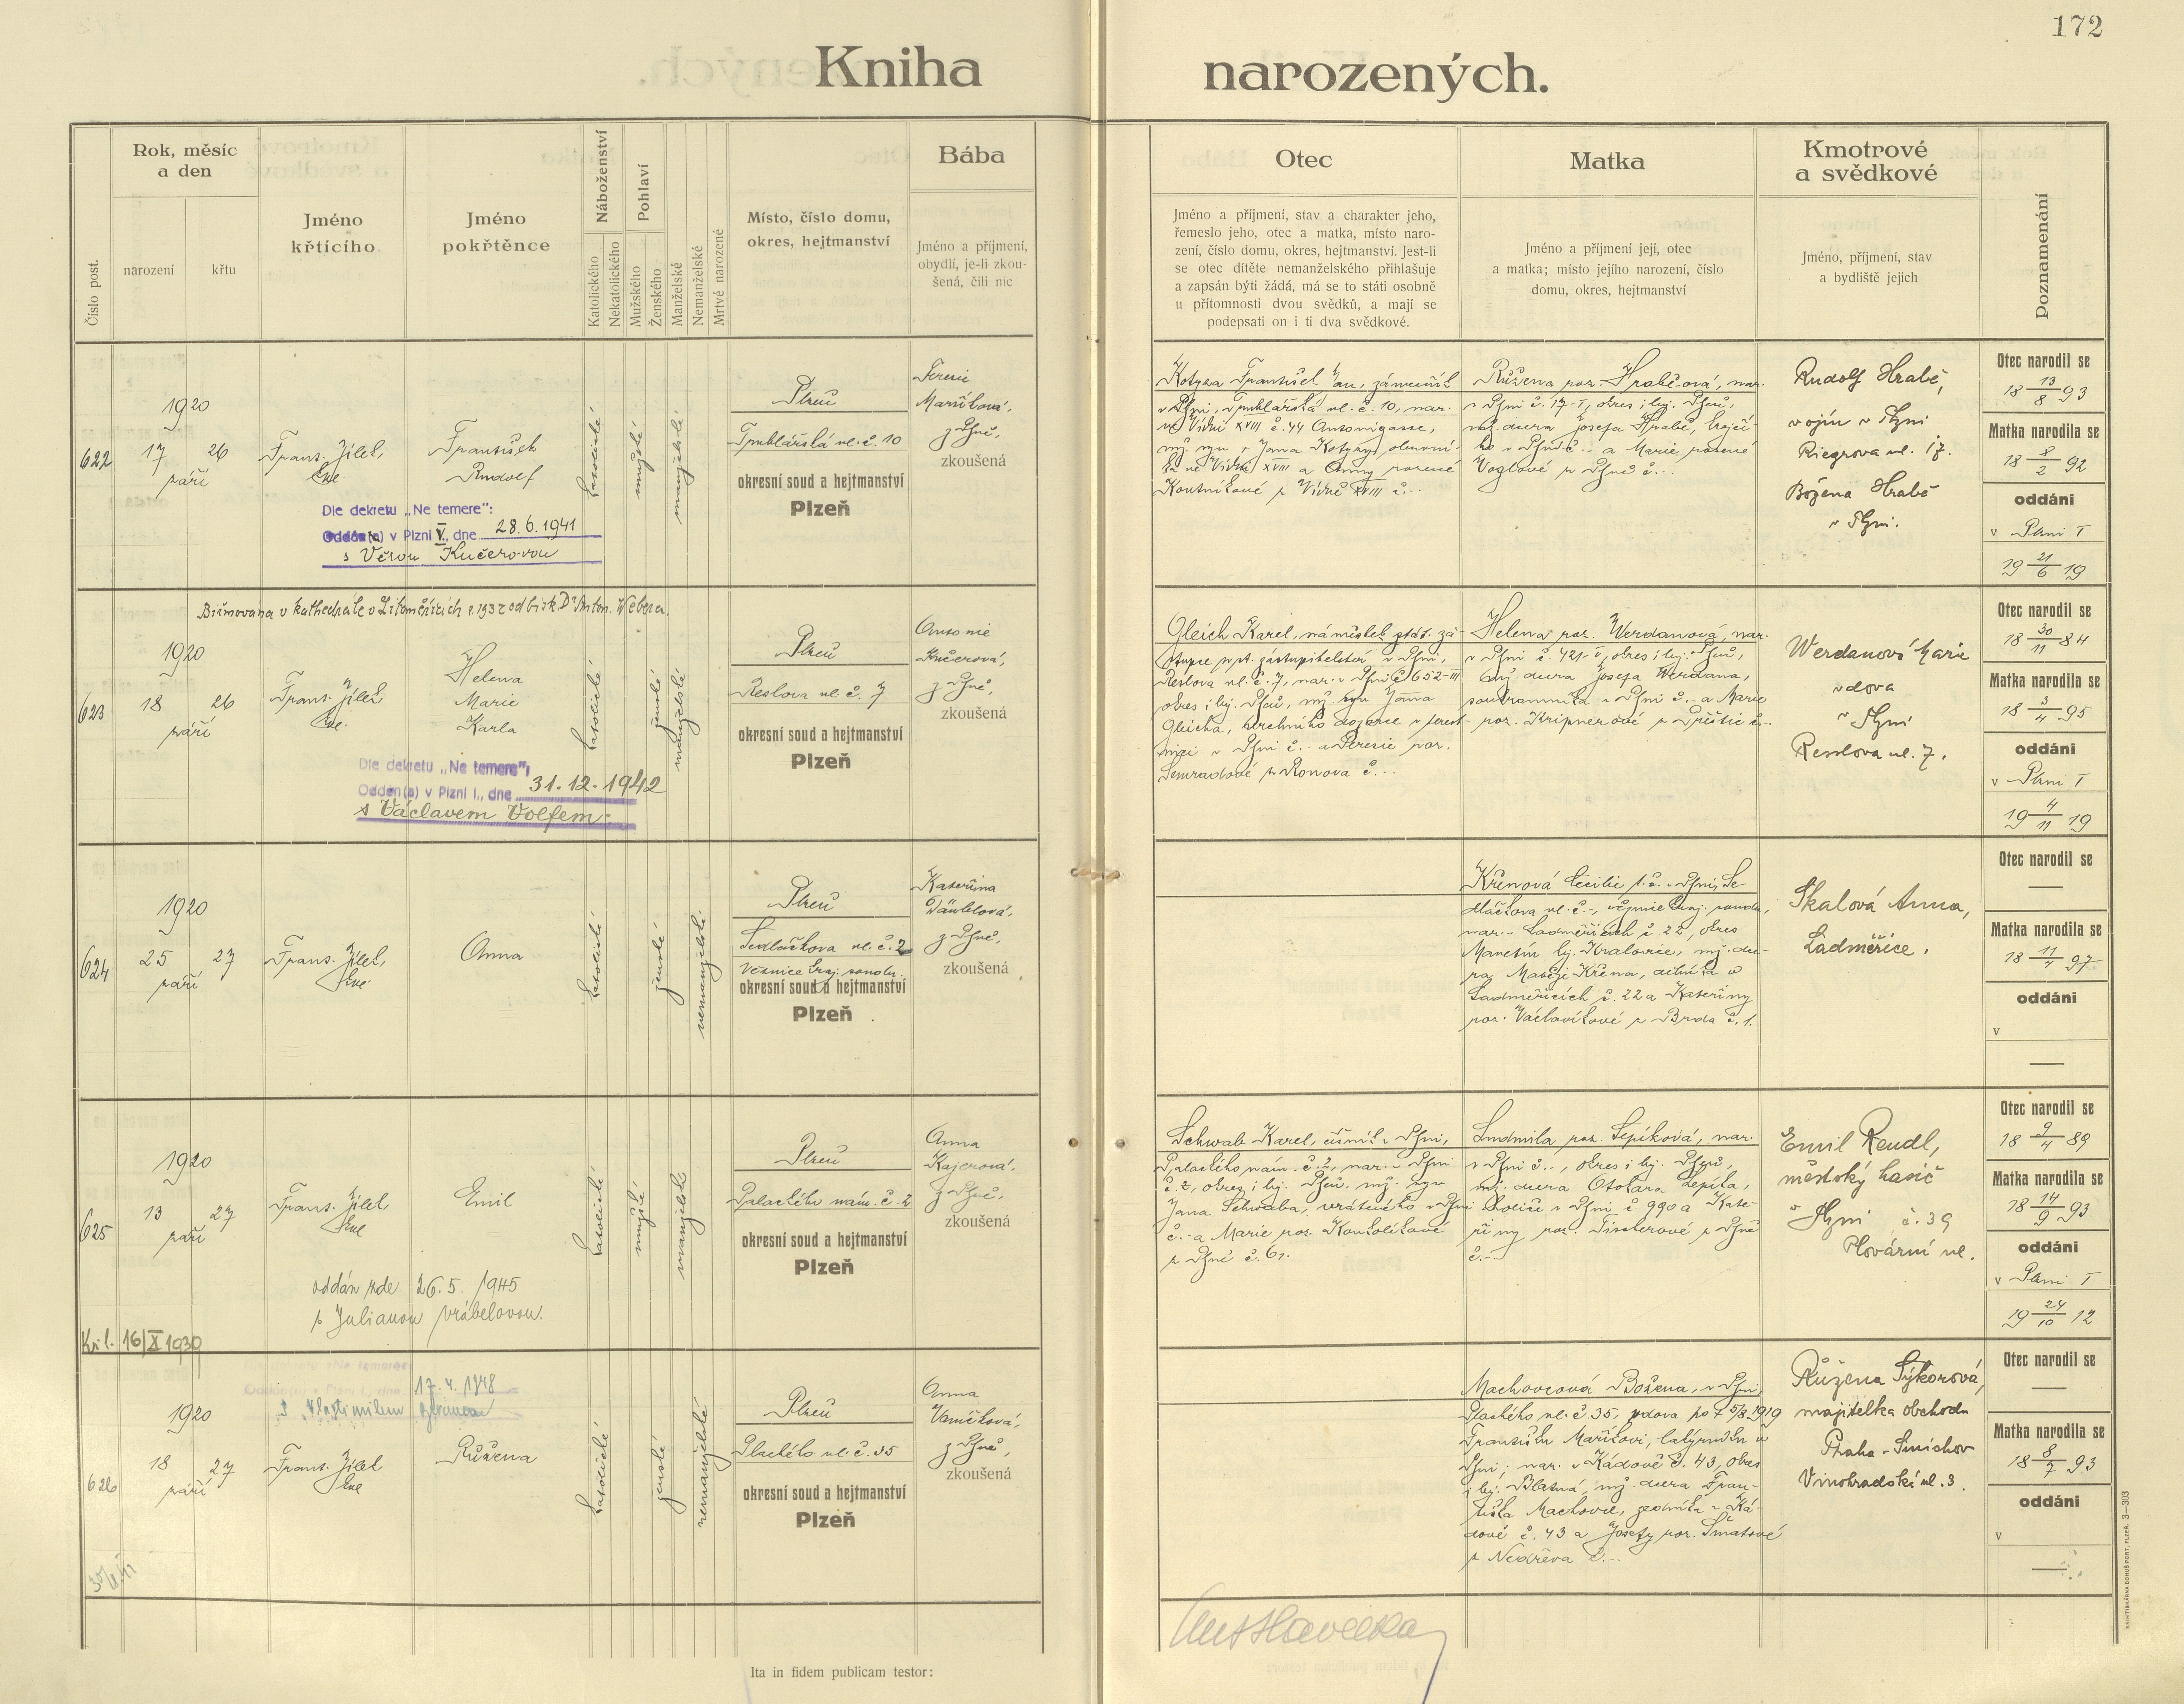 172
Kniha narozených.
Číslo post.
Rok, měsíc
a den
narození
křtu
Jméno
křtícího
Jméno
pokřtěnce
Náboženství
Katolického
Nekatolického
Pohlaví
Mužského
Ženského
Manželské
Nemanželské
Mrtvě narozené
Místo, číslo domu,
okres, hejtmanství
Bába
Jméno a příjmení,
obydlí, je-li zkou-
šená, čili nic
Otec
Jméno a příjmení, stav a charakter jeho,
řemeslo jeho, otec a matka, místo naro-
zení, číslo domu, okres, hejtmanství. Jest-li
se otec dítěte nemanželského přihlašuje
a zapsán býti žádá, má se to státi osobně
u přítomnosti dvou svědků, a mají se
podepsati on i ti dva svědkové.
Matka
Jméno a příjmení její, otec
a matka; místo jejího narození, číslo
domu, okres, hejtmanství
Kmotrové
a svědkové
Jméno, příjmení, stav
a bydliště jejich
Poznamenání
622
1920
17 26
září
Frant. Jílek,
František
Rudolf
katolické
mužské
manželské
Plzeň
Truhlářská ul. č. 10
okresní soud a hejtmanství
Plzeň
Terezie
Maršíková,
z Plzně,
zkoušená
Dle dekretu „Ne temere":
Oddán(a) v Plzni V., dne 28.6.1941
s Věrou Kučerovou
Kotyza František Jan, zámečník
v Plzni, Truhlářská ul. č. 10, nar.
ve Vídni XVIII č. 44 Antonigasse,
ve Vídni XVIII a Anny rozené
Koutníkové z Vídně XVIII č. -.
Růžena roz. Hrabětová, nar.
v Plzni č. 17-I, okres i hej. Plzeň,
man. dcera Josefa Hraběte, krejčí-
ho v Plzni č. - a Marie rozené
Voglové z Plzně č. -.
Rudolf Hrabě,
vojín v Plzni
Riegrova ul. 17.
Božena Hrabě
v Plzni.
Otec narodil se
18 13/8 93
Matka narodila se
18 8/2 92
oddáni
v Plzni I
19 21/6 19
Biřmována v kathedrále v Litoměřicích r. 1932 od bisk. Dr Anton. Webera.
623
1920
18 26
září
Frant. Jílek
Helena
Marie
Karla
katolické
ženské
manželské
Plzeň
Reslova ul. č. 7
okresní soud a hejtmanství
Plzeň
Antonie
Kučerová,
z Plzně,
zkoušená
Dle dekretu „Ne temere":
Oddán(a) v Plzni I., dne 31.12.1942
s Václavem Volfem.
Gleich Karel, náměstek stát. zá-
stupce při st. zastupitelství v Plzni,
Reslova ul. č. 7, nar. v Plzni č. 652-III
okres i hej. Plzeň, mž. syn Jana
mizi v Plzni č. - a Terezie roz.
Helena roz. Werdanová, nar.
v Plzni č. 421-I, okres i hej. Plzeň,
mž. dcera Josefa Werdana,
soukromníka v Plzni č. - a Marie
roz. Kripnerové
Werdanová Marie
vdova
v Plzni
Resslova ul. 7.
Otec narodil se
18 30/11 84
Matka narodila se
18 3/4 95
oddáni
v Plzni I
19 4/11 19
624
1920
25 27
září
Frant. Jílek,
Anna
katolické
ženské
nemanželské
Plzeň
Sedláčkova ul. č. 2
Věznice kraj. soudu.
okresní soud a hejtmanství
Plzeň
Kateřina
z Plzně,
zkoušená
Křenová Cecilie t. č. v Plzni, Se-
dláčkova ul. č. -, věznice kraj. soudu,
nar. v Ladměřicích č. 22, okres
Manetín hej. Kralovice, mž. dce-
ra Matěje Křena, dělníka v
Ladměřicích č. 22 a Kateřiny
roz. Václavíkové z Brda č. 1.
Skalová Anna,
Ladměřice.
Otec narodil se
—
Matka narodila se
18 11/4 97
oddáni
v
—
625
1920
13 27
září
Frant. Jílek
Emil
katolické
mužské
manželské
Plzeň
Palackého nám. č. 2
okresní soud a hejtmanství
Plzeň
Anna
Kajerová,
z Plzně,
zkoušená
oddán zde 26.5. 1945
s Julianou Vrábelovou.
Kř. l. 16/X 1939
Schwab Karel, číšník v Plzni,
Palackého nám. č. 2, nar. v Plzni
č. 2, okres i hej. Plzeň, mž. syn
Jana Schwaba, vrátného v Plzni
č. - a Marie roz. Koukolíkové
z Plzně č. 61.
Ludmila roz. Lepíková, nar.
v Plzni č. -, okres i hej. Plzeň,
mž. dcera Otokara Lepíka,
v Plzni č. 990 a Kate-
řiny roz. Fischerové z Plzně
č. -.
Emil Rendl,
městský hasič
v Plzni č. 39
Plovární ul.
Otec narodil se
18 9/4 89
Matka narodila se
18 14/9 93
oddáni
v Plzni I
19 24/10 12
Dle dekretu „Ne temere"
Oddán(a) v Plzni I., dne 17.4.1948
s Vlastimilem
626
1920
18 27
září
Frant. Jílek
Růžena
katolické
ženské
nemanželské
Plzeň
Plachého ul. č. 35
okresní soud a hejtmanství
Plzeň
Anna
Vaníčková,
z Plzně,
zkoušená
Machovcová Božena, v Plzni,
Plachého ul. č. 35, vdova po † 5/8 1919
Františku Maříkovi, v
Plzni; nar. v Kádově č. 43, okres
i hej. Blatná, mž. dcera Fran-
tiška Machovce, rolníka v Ká-
dově č. 43 a Josefy roz. Šmatové
z Nedřeva č. -.
Růžena Sýkorová,
majitelka obchodu
Praha - Smíchov
Vinohradská ul. 3.
Otec narodil se
—
Matka narodila se
18 8/7 93
oddáni
v
—
Ita in fidem publicam testor:
KNIHTISKÁRNA BOHUŠ PORT, PLZEŇ. 3—303